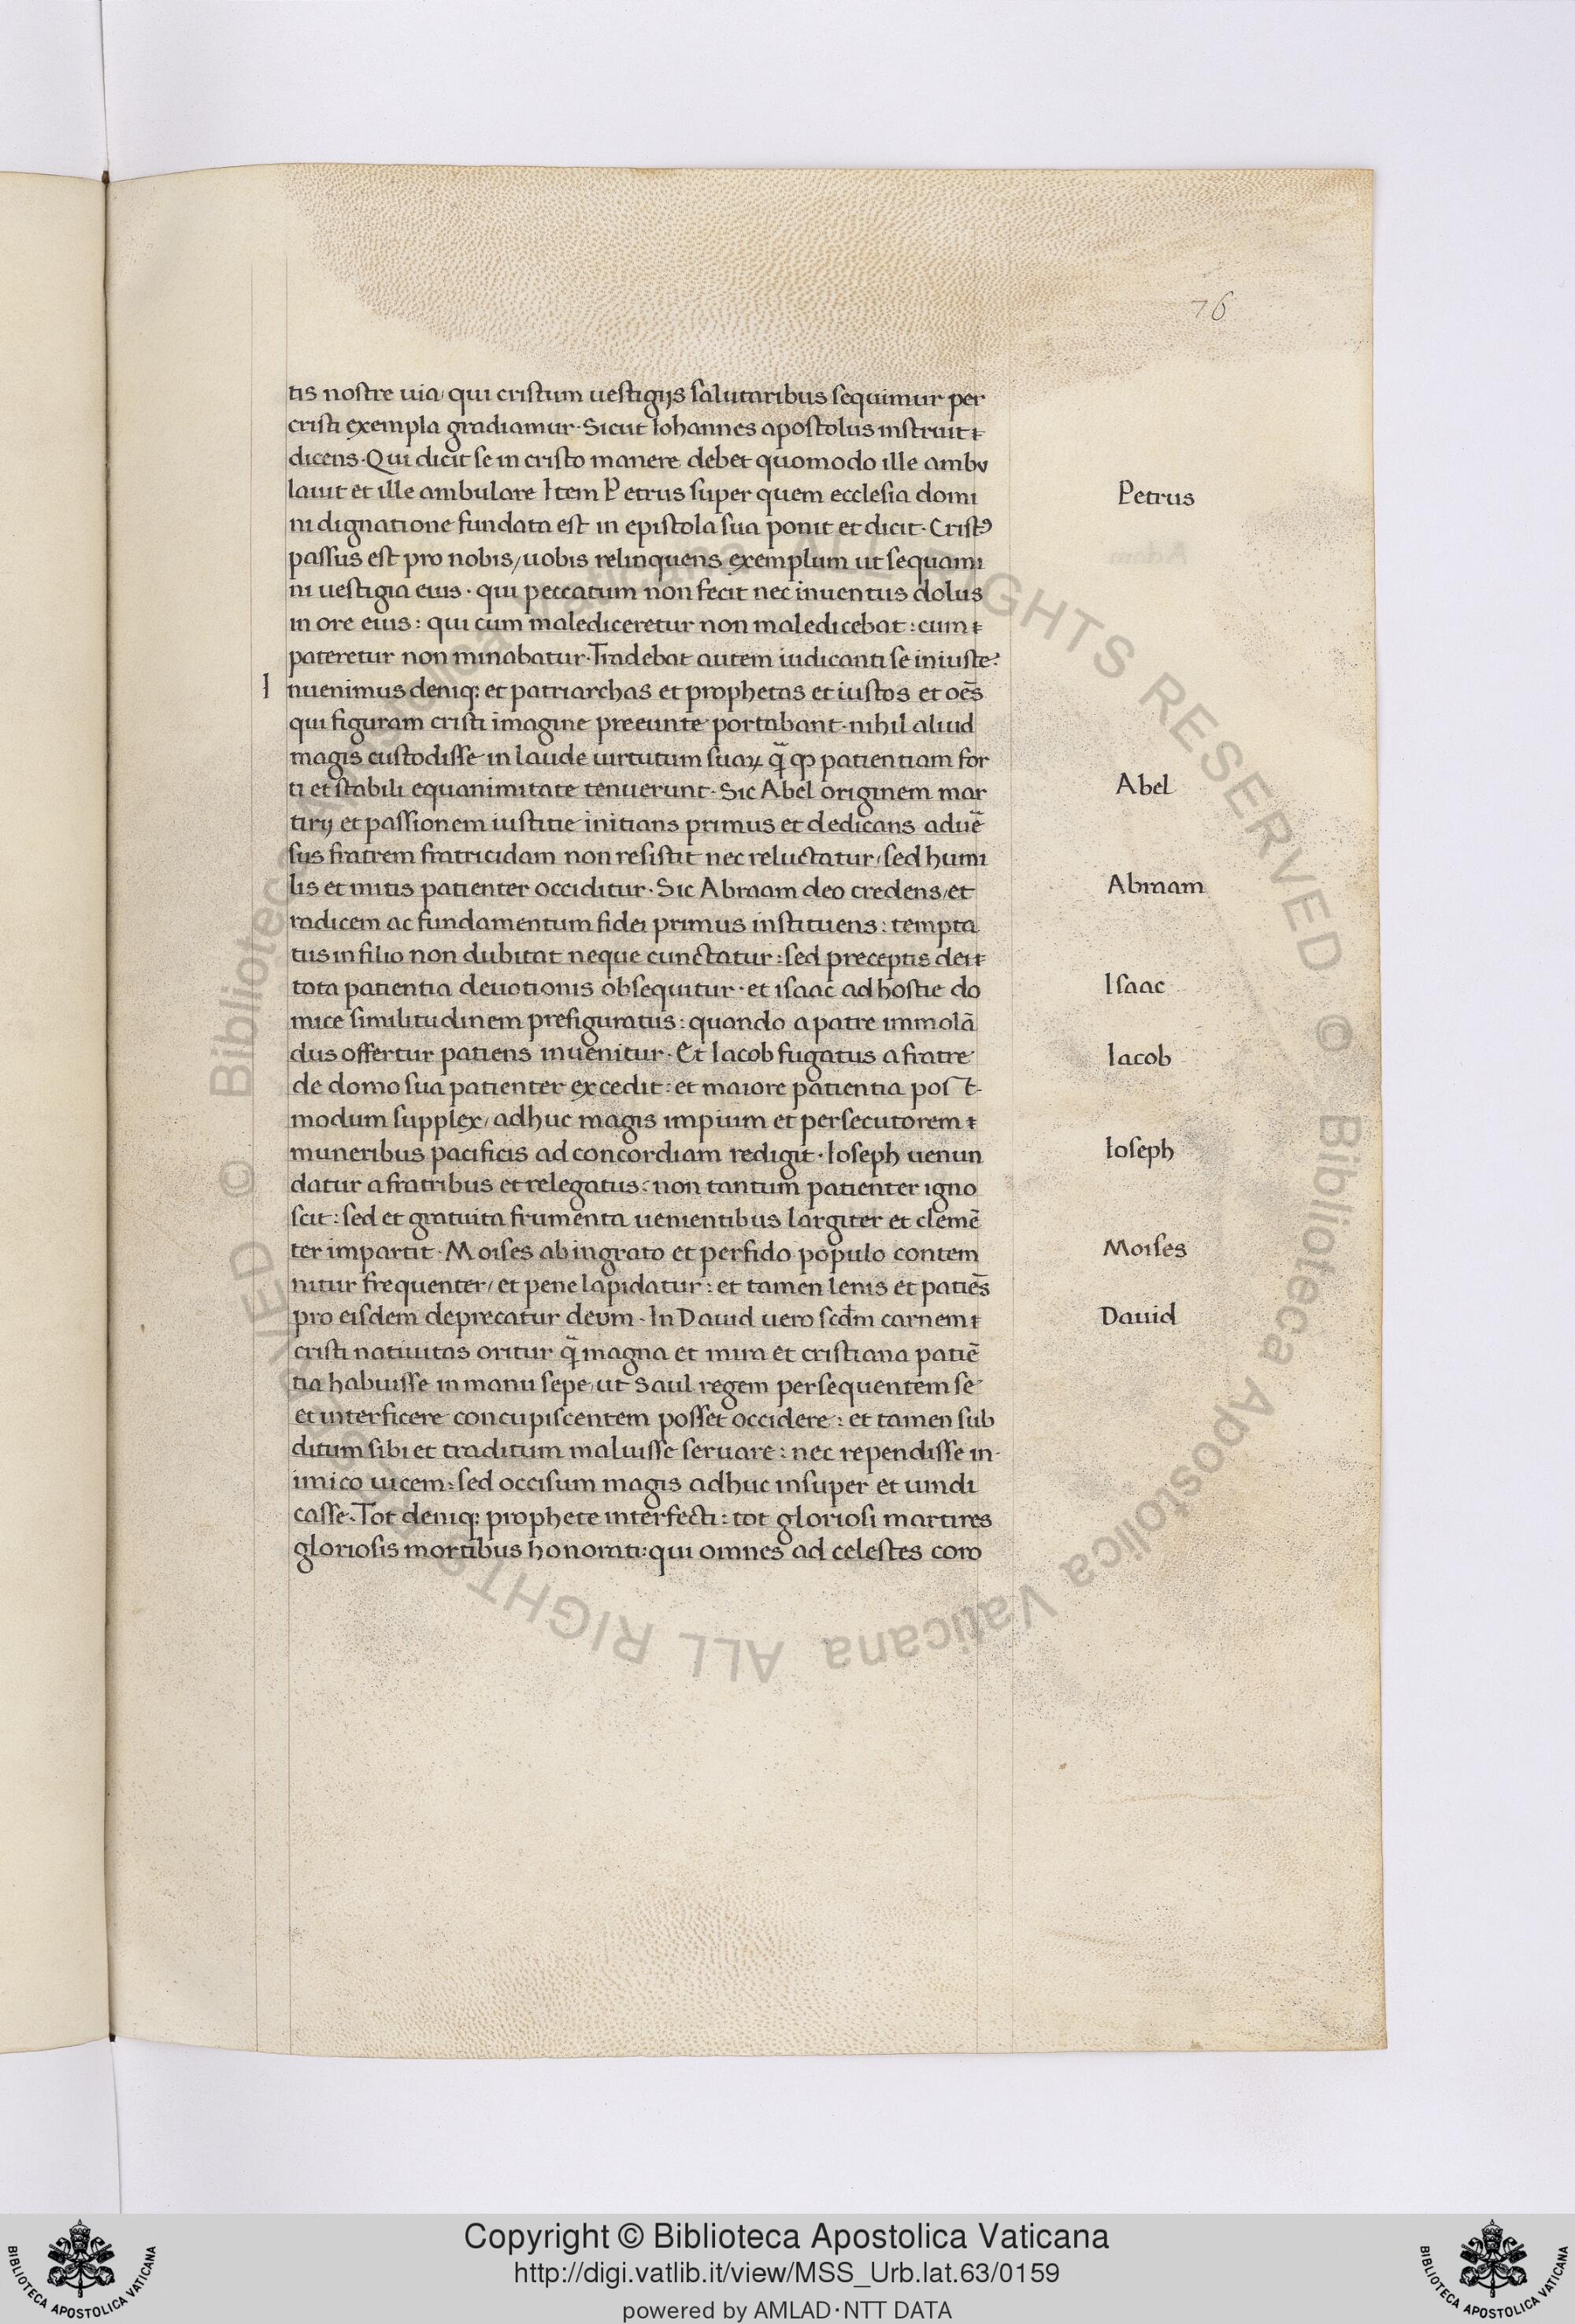 76
tis nostre uia, qui cristum uestigijs salutaribus sequimur per
cristi exempla gradiamur. Sicut Iohannes apostolus instruit
dicens. Qui dicit se in cristo manere debet quomodo ille ambu
lauit et ille ambulare Item Petrus super quem ecclesia domi
Petrus
ni dignatione fundata est in epistola sua ponit et dicit. Cristꝰ
passus est pro nobis, uobis relinquens exemplum ut sequami
ni uestigia eius. qui peccatum non fecit nec inuentus dolus
in ore eius: qui cum malediceretur non maledicebat: cum
pateretur non minabatur. Tradebat autem iudicanti se iniuste.
I nuenimus deniq; et patriarchas et prophetas et iustos et oēs
qui figuram cristi imagine preeunte portabant. nihil aliud
magis custodisse in laude uirtutum suaꝝ q̄ ꝙ patientiam for
ti et stabili equanimitate tenuerunt. Sic Abel originem mar
Abel
tirij et passionem iustitie initians primus et dedicans aduē
sus fratrem fratricidam non resistit nec reluctatur, sed humi
lis et mitis patienter occiditur. Sic Abraam deo credens, et
Abraam
radicem ac fundamentum fidei primus instituens: tempta
tus in filio non dubitat neque cunctatur: sed preceptis dei
tota patientia deuotionis obsequitur. et isaac ad hostie do
Isaac
mice similitudinem prefiguratus: quando a patre immolā
dus offertur patiens inuenitur. Et Iacob fugatus a fratre
Iacob
de domo sua patienter excedit: et maiore patientia post
modum supplex, adhuc magis impium et persecutorem
muneribus pacificis ad concordiam redigit. Ioseph uenun
Ioseph
datur a fratribus et relegatus: non tantum patienter igno
scit: sed et gratuita frumenta uenientibus largiter et clemē
ter impartit. Moises ab ingrato et perfido populo contem
Moises
nitur frequenter, et pene lapidatur: et tamen lenis et patiēs
pro eisdem deprecatur deum. In Dauid uero scd̄m carnem
Dauid
cristi natiuitas oritur q̄ magna et mira et cristiana patiē
tia habuisse in manu sepe, ut Saul regem persequentem se
et interficere concupiscentem posset occidere: et tamen sub
ditum sibi et traditum maluisse seruare: nec rependisse in
imico uicem: sed occisum magis adhuc insuper et uindi
casse. Tot deniq; prophete interfecti: tot gloriosi martires
gloriosis mortibus honorati: qui omnes ad celestes coro
© Biblioteca Apostolica Vaticana ALL RIGHTS RESERVED
Copyright © Biblioteca Apostolica Vaticana
http://digi.vatlib.it/view/MSS_Urb.lat.63/0159
powered by AMLAD·NTT DATA
BIBLIOTECA APOSTOLICA VATICANA
BIBLIOTECA APOSTOLICA VATICANA